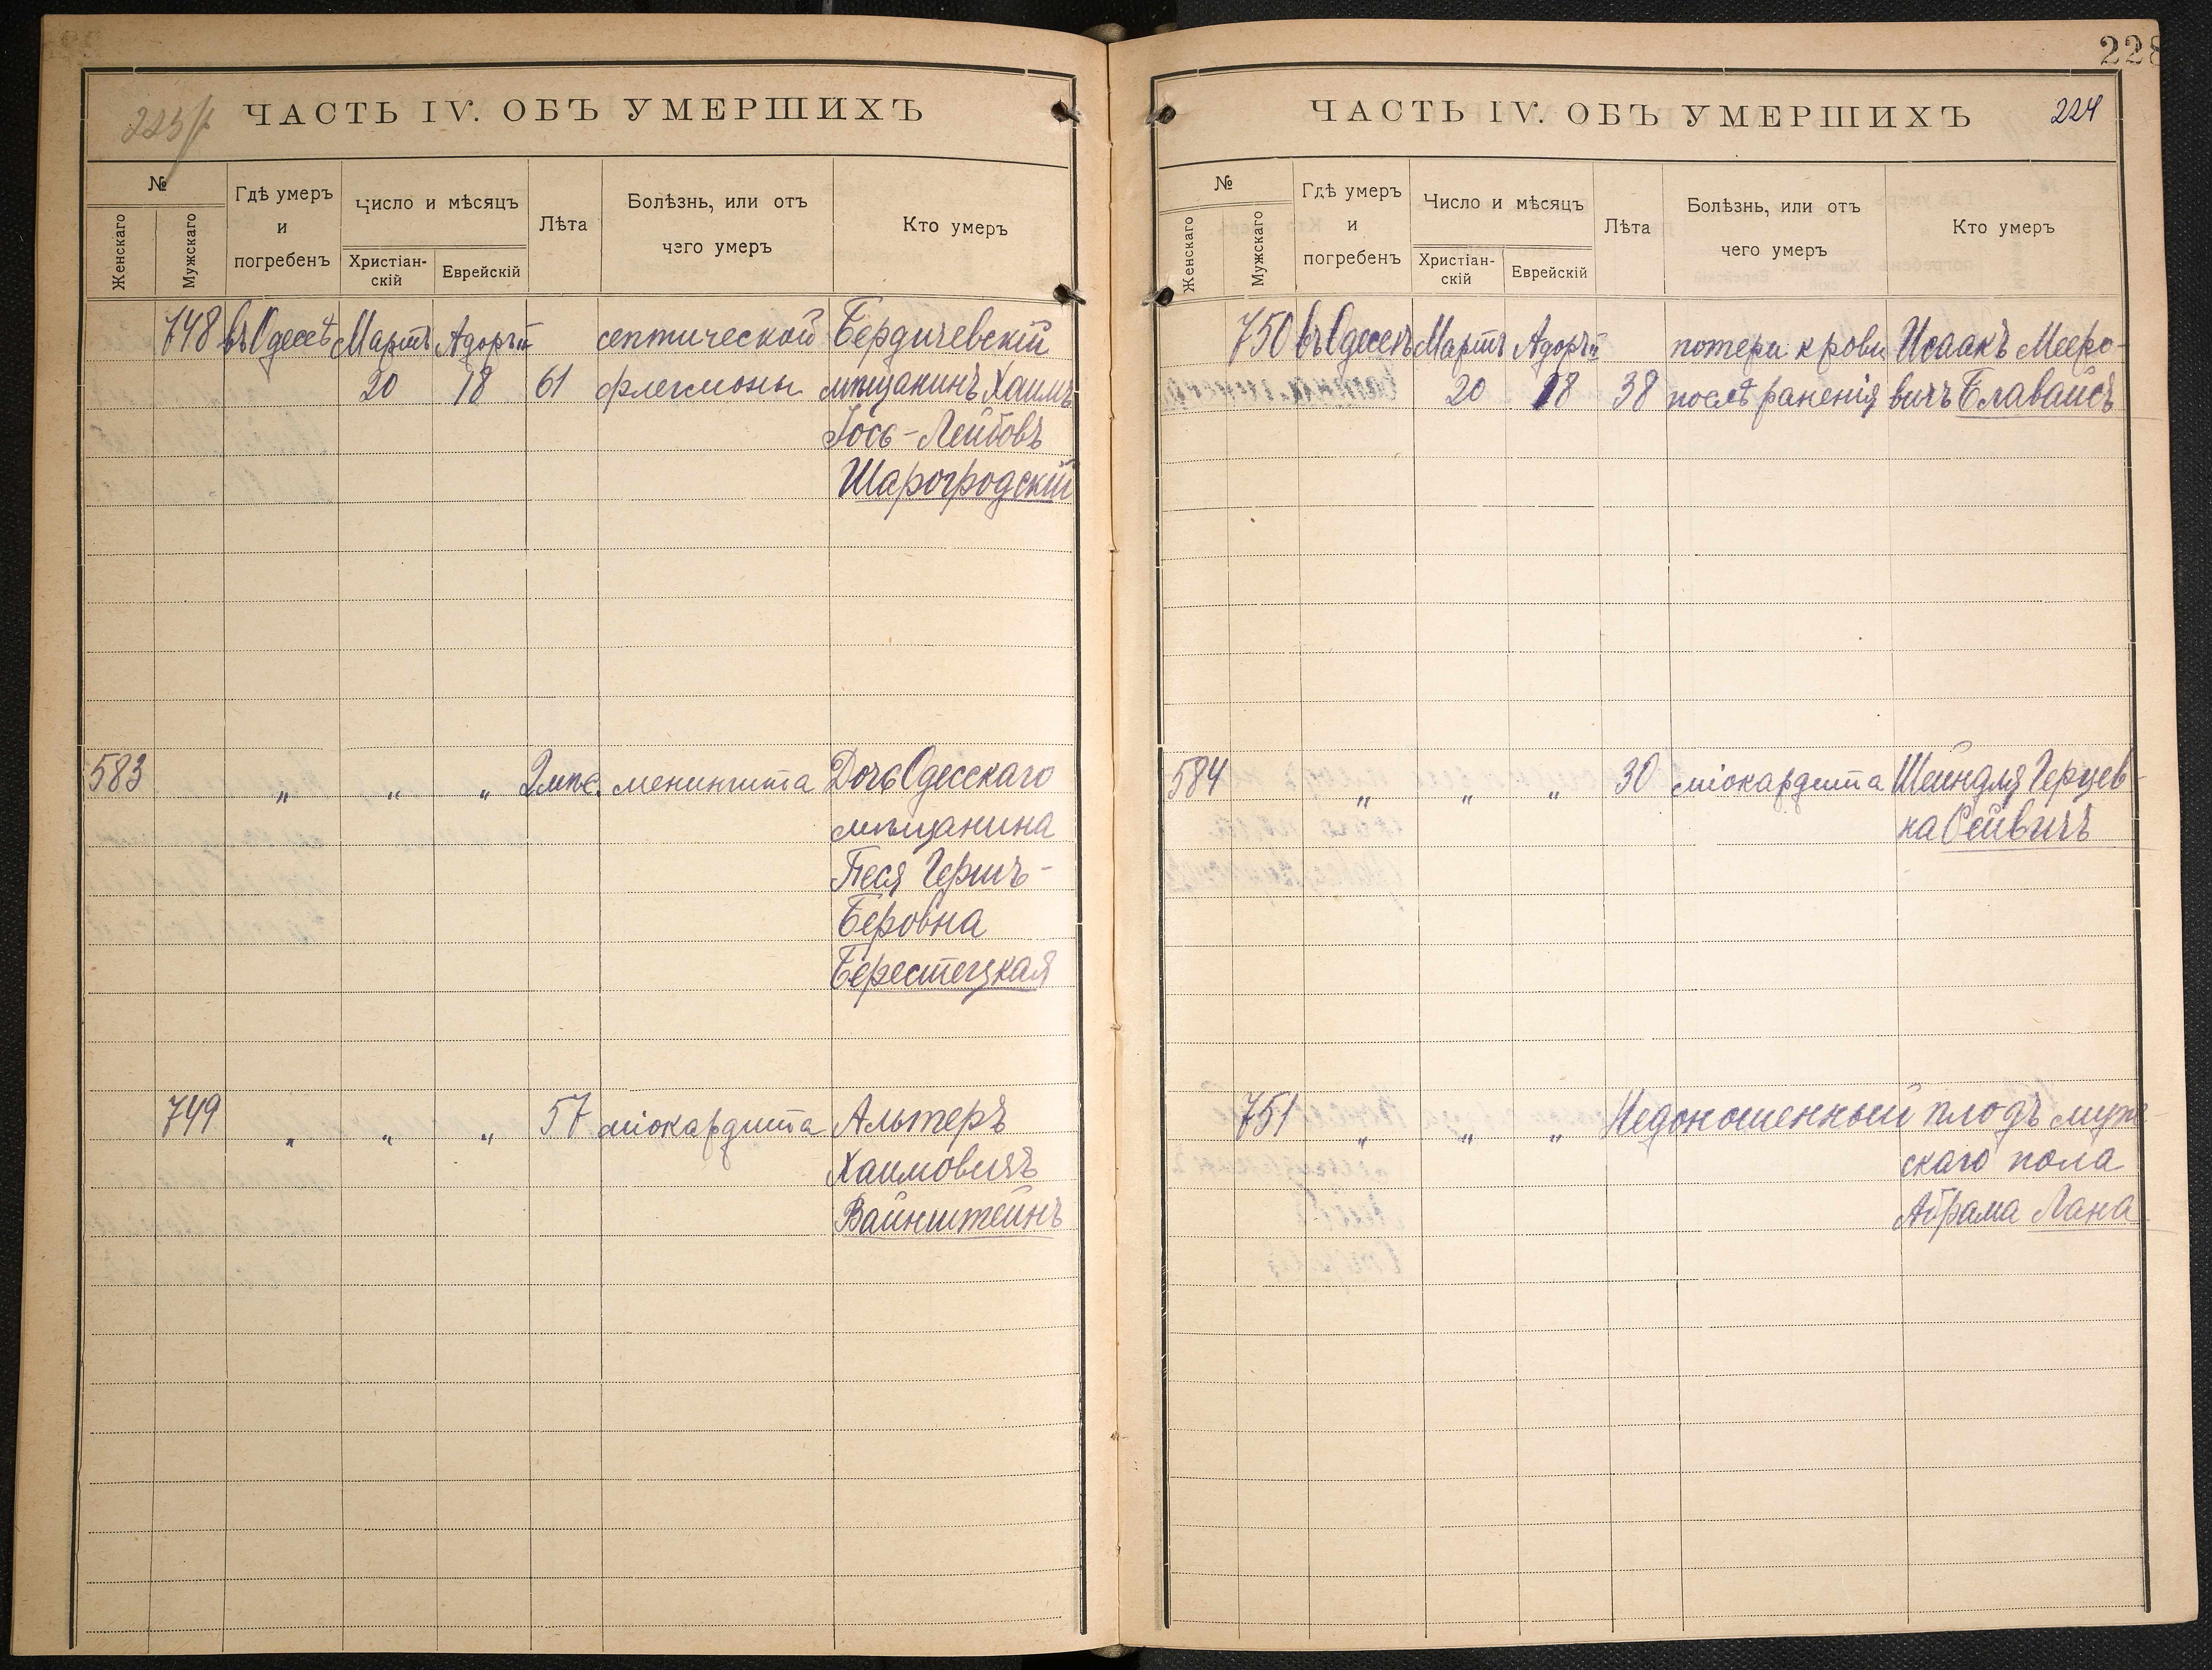 ЧАСТЬ IV. ОБЪ УМЕРШИХЪ
№
Женскаго
Мужскаго
Гдѣ умеръ
и
погребенъ
Число и мѣсяцъ
Христіан-
скій
Еврейскій
Лѣта
Болѣзнь, или отъ
чего умеръ
Кто умеръ
748 въ Одессѣ Мартъ Адоръ II септической Бердичевскій
20 18 61 флегмоны мѣщанинъ Хаимъ
Іось-Лейбовъ
Шарогродскій
583 " " " 2 мѣс. менингита Дочь Одесскаго
мѣщанина
Песя Гершъ-
Беровна
Берестецкая
749 " " " 57 міокардита Альтеръ
Хаимовичъ
Вайнштейнъ
228
ЧАСТЬ IV. ОБЪ УМЕРШИХЪ 224
№
Женскаго
Мужскаго
Гдѣ умеръ
и
погребенъ
Число и мѣсяцъ
Христіан-
скій
Еврейскій
Лѣта
Болѣзнь, или отъ
чего умеръ
Кто умеръ
750 въ Одессѣ Мартъ Адоръ II потери крови Исаакъ Мееро-
20 18 38 послѣ раненія вичъ Блавайсъ
584 " " " 30 міокардита Шейндля Герцев-
на Сейвичъ
751 " " " Недоношенный плодъ муж
скаго пола
Абрама Лана